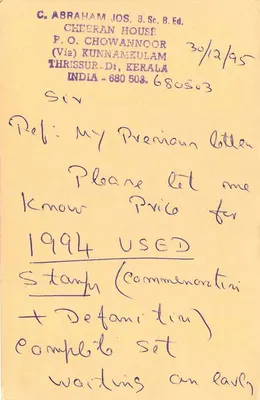 C. ABRAHAM JOS, B. Sc. B. Ed.
CHEERAN HOUSE
P. O. CHOWANNOOR
(Via) KUNNAMKULAM
THRISSUR-Dt, KERALA
INDIA - 680 503.
680503
30/12/95
Sir
Ref: My Previous letter
Please let me
know Price for
1994 USED
Stamps (commemorative
+ Definitive)
complete set
waiting an early